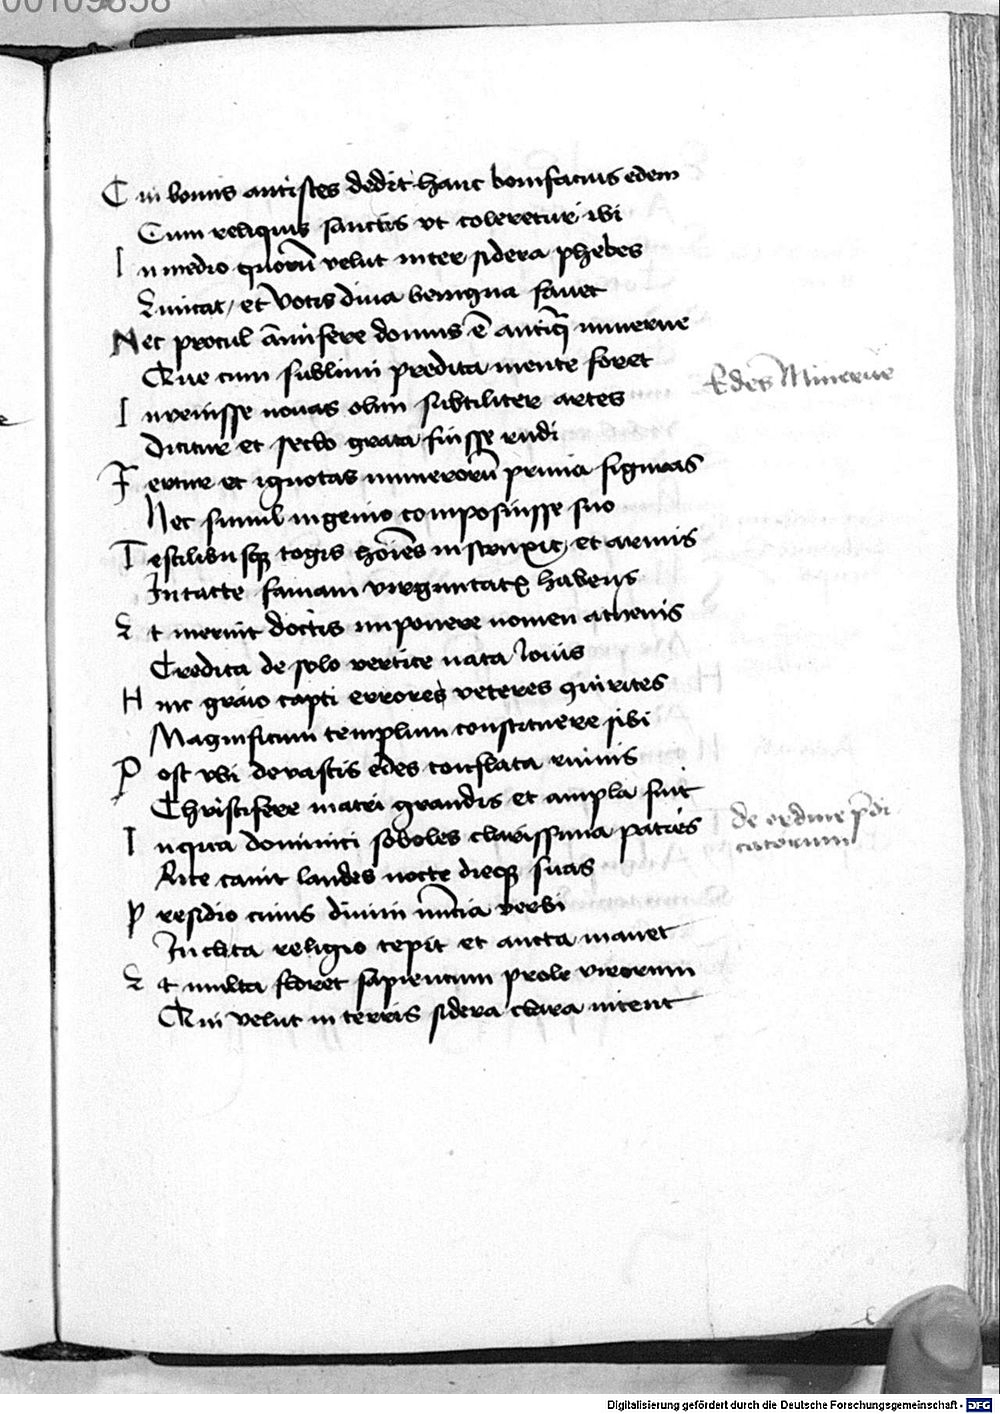 00109858
Cui bonus antistes dedit hanc bonifacius edem
Cum reliquis sanctis vt coleretur ibi
In medio quorū velut inter sidera phebes
Emicat, et votis diua benigna fauet
Nec procul a᷑ domus ē antiq̄ minerue
Que cum sublimi predita mente foret
Inuenisse nouas olim subtiliter artes
Dicitur et seclo grata fuisse rudi
Fertur et ignotas numerorū prima figuras
Nec simul ingenio composuisse suo
Textilibusqꝫ togis hoīes instruxit, et armis
Intacte famam virginitatis habens
Et meruit doctis imponere nomen athenis
Credita de solo vertice nata Iouis
Huic graio capti errores veteres quirites
Magnificum templum constituere sibi
Post vbi deuastis edes conflata ruinis
Christifere matri grandis et ampla fuit
In qua dominici soboles clarissima patris
Rite canit laudes nocte dieqꝫ suas
Presidio cuius diuini nūcia verbi
Inclita religio cepit et aucta manet
Et multa floret sapientum prole virorum
Qui velut in terris sidera clara nitent
Edes Minerue
de ordine p̄di
catorum
Digitalisierung gefördert durch die Deutsche Forschungsgemeinschaft - DFG